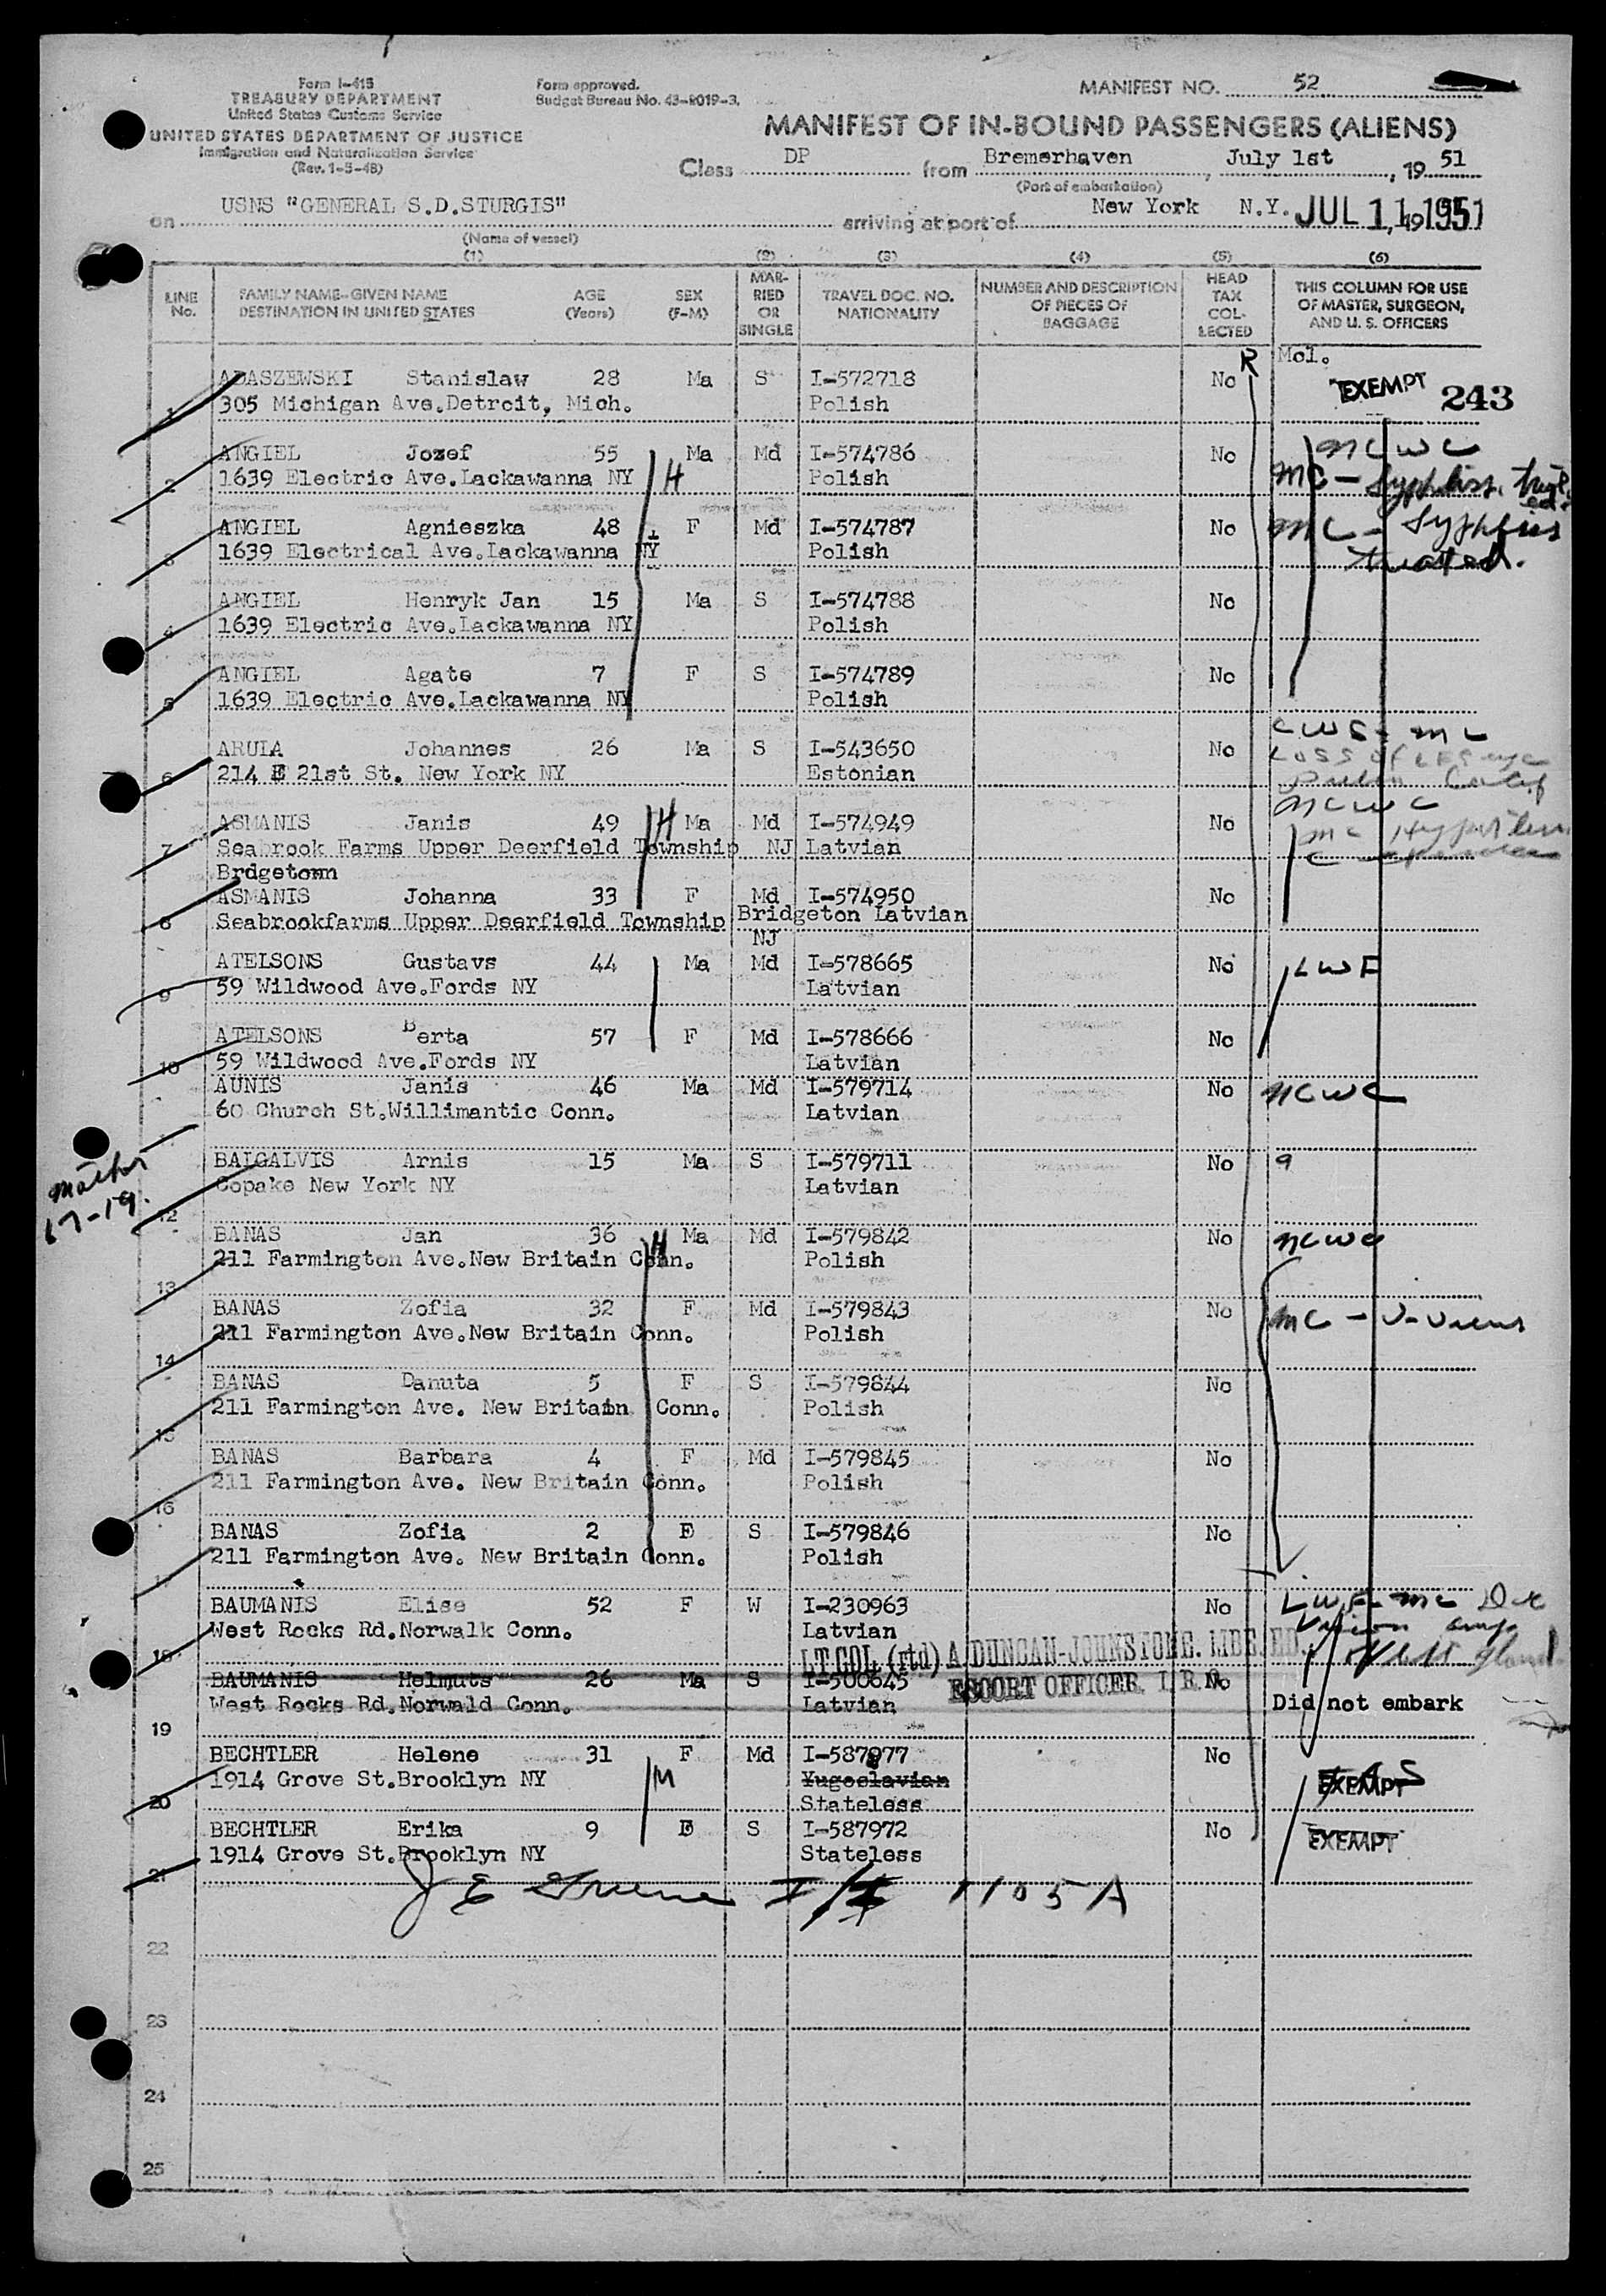 Form I-415
TREASURY DEPARTMENT
United States Customs Service
UNITED STATES DEPARTMENT OF JUSTICE
Immigration and Naturalization Service
(Rev. 1-5-48)
Form approved.
Budget Bureau No. 43-R019-3.
MANIFEST NO. 52
MANIFEST OF IN-BOUND PASSENGERS (ALIENS)
Class DP from Bremerhaven, July 1st, 19 51
(Port of embarkation)
on USNS "GENERAL S.D.STURGIS" arriving at port of New York N.Y. JUL 11 1951
(Name of vessel)
(1) (2) (3) (4) (5) (6)
LINE No. FAMILY NAME-GIVEN NAME DESTINATION IN UNITED STATES AGE (Years) SEX (F-M) MARRIED OR SINGLE TRAVEL DOC. NO. NATIONALITY NUMBER AND DESCRIPTION OF PIECES OF BAGGAGE HEAD TAX COLLECTED THIS COLUMN FOR USE OF MASTER, SURGEON, AND U. S. OFFICERS
R Mol.
ADASZEWSKI Stanislaw 28 Ma S I-572718 No EXEMPT 243
1 305 Michigan Ave.Detroit, Mich. Polish
ANGIEL Jozef 55 Ma Md I-574786 No NCWC
2 1639 Electric Ave.Lackawanna NY H Polish MC - Syphilis,
ANGIEL Agnieszka 48 F Md I-574787 No MC - Syphilis
3 1639 Electrical Ave.Lackawanna NY Polish treated.
ANGIEL Henryk Jan 15 Ma S I-574788 No
4 1639 Electric Ave.Lackawanna NY Polish
ANGIEL Agate 7 F S I-574789 No
5 1639 Electric Ave.Lackawanna NY Polish
ARULA Johannes 26 Ma S I-543650 No CWS - MC
6 214 E 21st St. New York NY Estonian LOSS OF
NCWC
ASMANIS Janis 49 H Ma Md I-574949 No
7 Seabrook Farms Upper Deerfield Township NJ Latvian
Brdgetown
ASMANIS Johanna 33 F Md I-574950 No
8 Seabrookfarms Upper Deerfield Township Bridgeton Latvian
NJ
ATELSONS Gustavs 44 Ma Md I-578665 No LWF
9 59 Wildwood Ave.Fords NY Latvian
ATELSONS Berta 57 F Md I-578666 No
10 59 Wildwood Ave.Fords NY Latvian
AUNIS Janis 46 Ma Md I-579714 No NCWC
60 Church St.Willimantic Conn. Latvian
BAIGALVIS Arnis 15 Ma S I-579711 No 9
12 Copake New York NY Latvian
17-19.
BANAS Jan 36 H Ma Md I-579842 No NCWC
13 211 Farmington Ave.New Britain Conn. Polish
BANAS Zofia 32 F Md I-579843 No MC - V-Veins
14 211 Farmington Ave.New Britain Conn. Polish
BANAS Danuta 5 F S I-579844 No
15 211 Farmington Ave. New Britain Conn. Polish
BANAS Barbara 4 F Md I-579845 No
16 211 Farmington Ave. New Britain Conn. Polish
BANAS Zofia 2 F S I-579846 No
17 211 Farmington Ave. New Britain Conn. Polish
BAUMANIS Elise 52 F W I-230963 No LWF - MC
18 West Rocks Rd.Norwalk Conn. Latvian
LT.COL. (rtd) A. DUNCAN-JOHNSTONE. MBE. ED.
ESCORT OFFICER. I.R.O.
BAUMANIS Helmuts 26 Ma S I-500645 No
19 West Rocks Rd.Norwald Conn. Latvian Did not embark
BECHTLER Helene 31 F Md I-587977 No
20 1914 Grove St.Brooklyn NY M Yugoslavian EXEMPT
Stateless
BECHTLER Erika 9 F S I-587972 No EXEMPT
21 1914 Grove St.Brooklyn NY Stateless
J E Greene 1105A
22
23
24
25